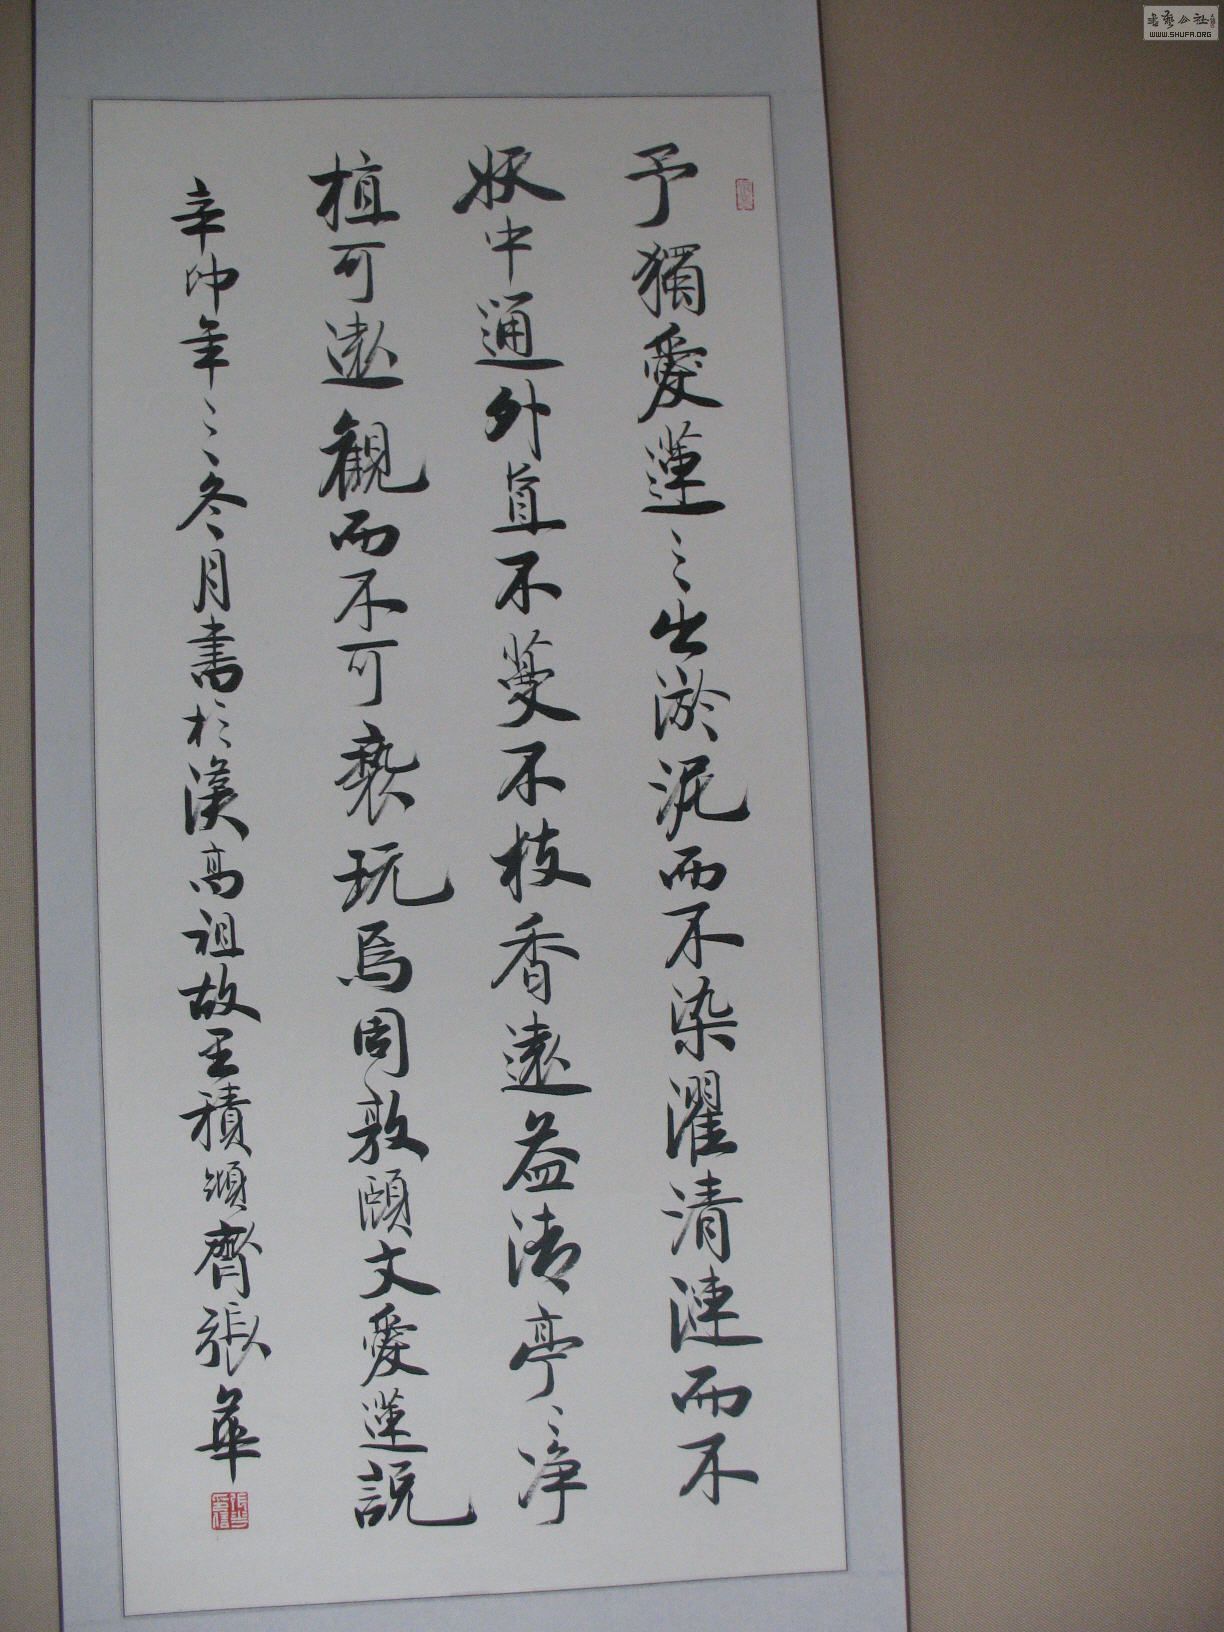 予獨愛蓮之出淤泥而不染濯清漣而不
妖中通外直不蔓不枝香遠益清亭〻净
植可遠觀而不可褻玩焉周敦頤文愛蓮說
辛卯年之冬月書於漢高祖故里積順齊張華
WWW.SHUFA.ORG